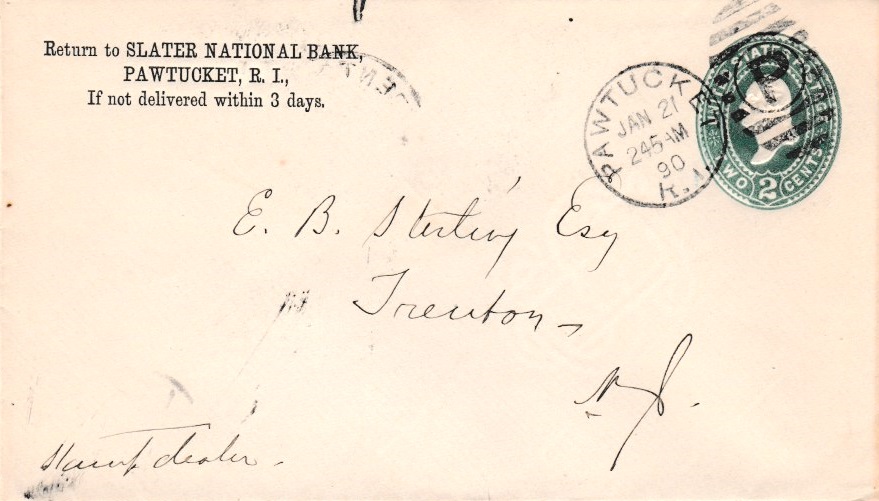 Return to SLATER NATIONAL BANK,
PAWTUCKET, R. I.,
If not delivered within 3 days.
PAWTUCKET
JAN 21
245 AM
90
R.I.
STATES
TWO 2 CENTS
E. B. Sterling Esq
Trenton
N. J.
Stamp dealer.